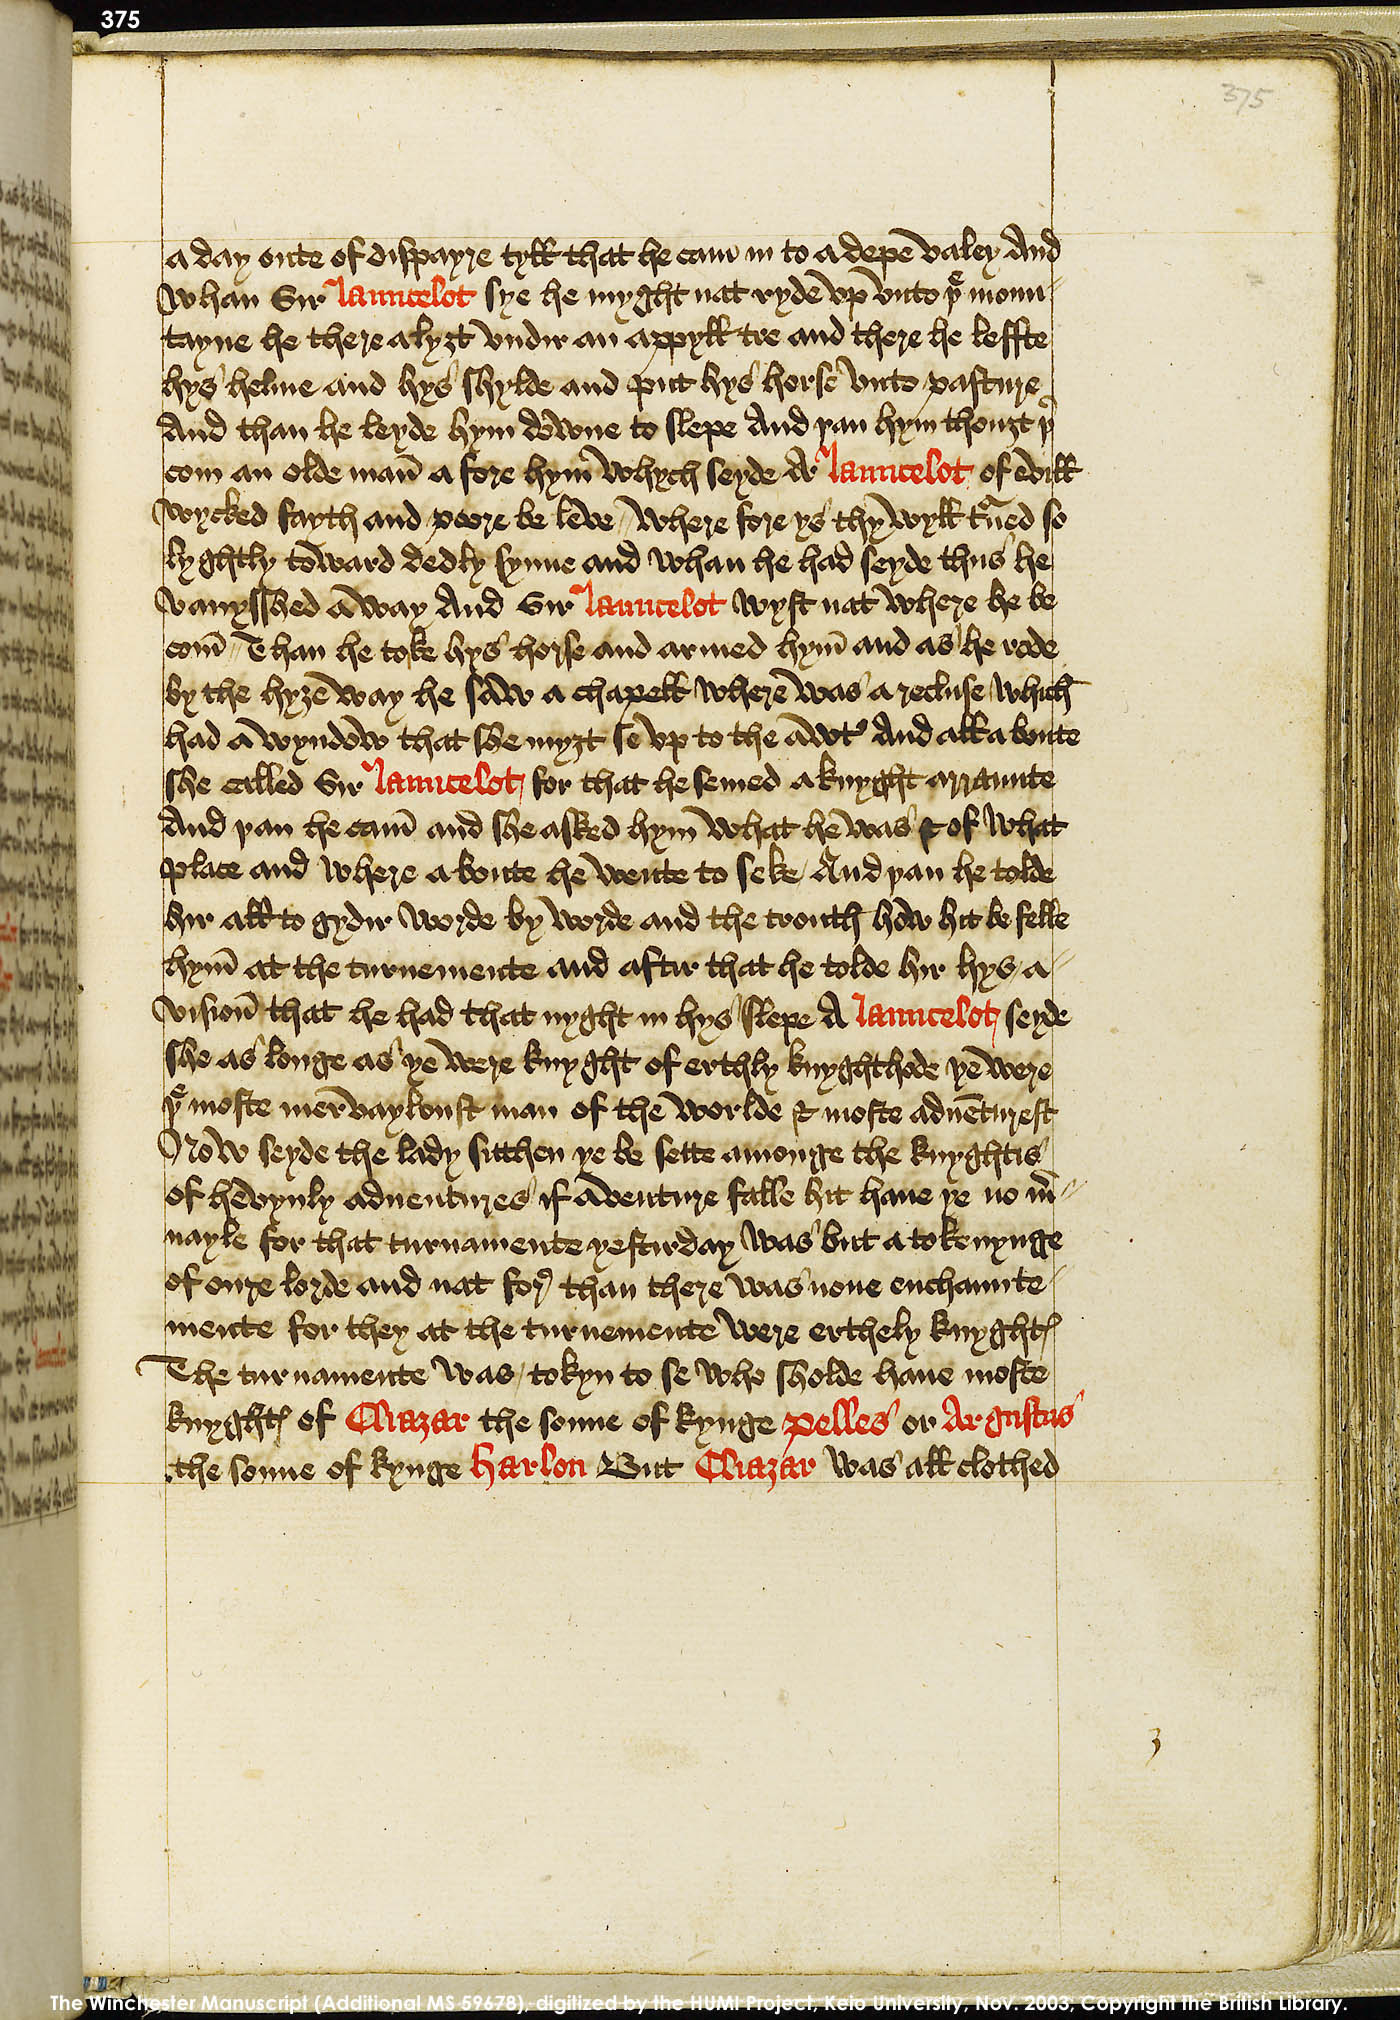 375
375
a day oute of dispayre tyll that he cam in to a depe valey And
Whan Sir Launcelot sye he myght nat ryde vp vnto þe moun-
tayne he there alyȝt vndir an appyll tre and there he leffte
hys helme and hys shylde and put hys horse vnto pasture
And than he leyde hym downe to slepe And þan hym thouȝt þr
com an olde man̄ a fore hym̄ whych seyde A Launcelot of evill
wycked fayth and poore be leve Where fore ys thy wyll tned so
lyghtly toward dedly synne and whan he had seyde thus he
vanysshed a way And Sir Launcelot wyst nat where he be
com̄ Than he toke hys horse and armed hym̄ and as he rode
by the hyȝe way he saw a chapell where was a recluse which
had a wyndow that she myȝt se vp to the awtr And all a boute
she called Sir Launcelot for that he semed a knyght arraunte
And þan he cam̄ and she asked hym what he was & of what
place and where a boute he wente to seke And þan he tolde
hir all to gydir worde by worde and the trouth how hit be felle
hym̄ at the turnemente and aftir that he tolde hir hys a-
vision̄ that he had that nyght in hys slepe A Launcelot seyde
she as longe as ye were knyght of erthly knyghthode ye were
þe moste mervayloust man of the worlde & moste aduēturest
Now seyde the lady sitthen ye be sette amonge the knyghtis
of hevynly aduentures if aventure falle hit haue ye no m̄-
uayle for that turnamente yestirday was but a tokenynge
of oure lorde and nat for than there was none enchaunte-
mente for they at the turnemente were erthely knyghtꝭ
The turnamente was tokyn to se who sholde haue moste
knyghtꝭ of Eliazar the sonne of kynge Pelles or Argustus
the sonne of kynge Harlon But Eliazar was all clothed
3
The Winchester Manuscript (Additional MS 59678), digitized by the HUMI Project, Keio University, Nov. 2003, Copyright The British Library.